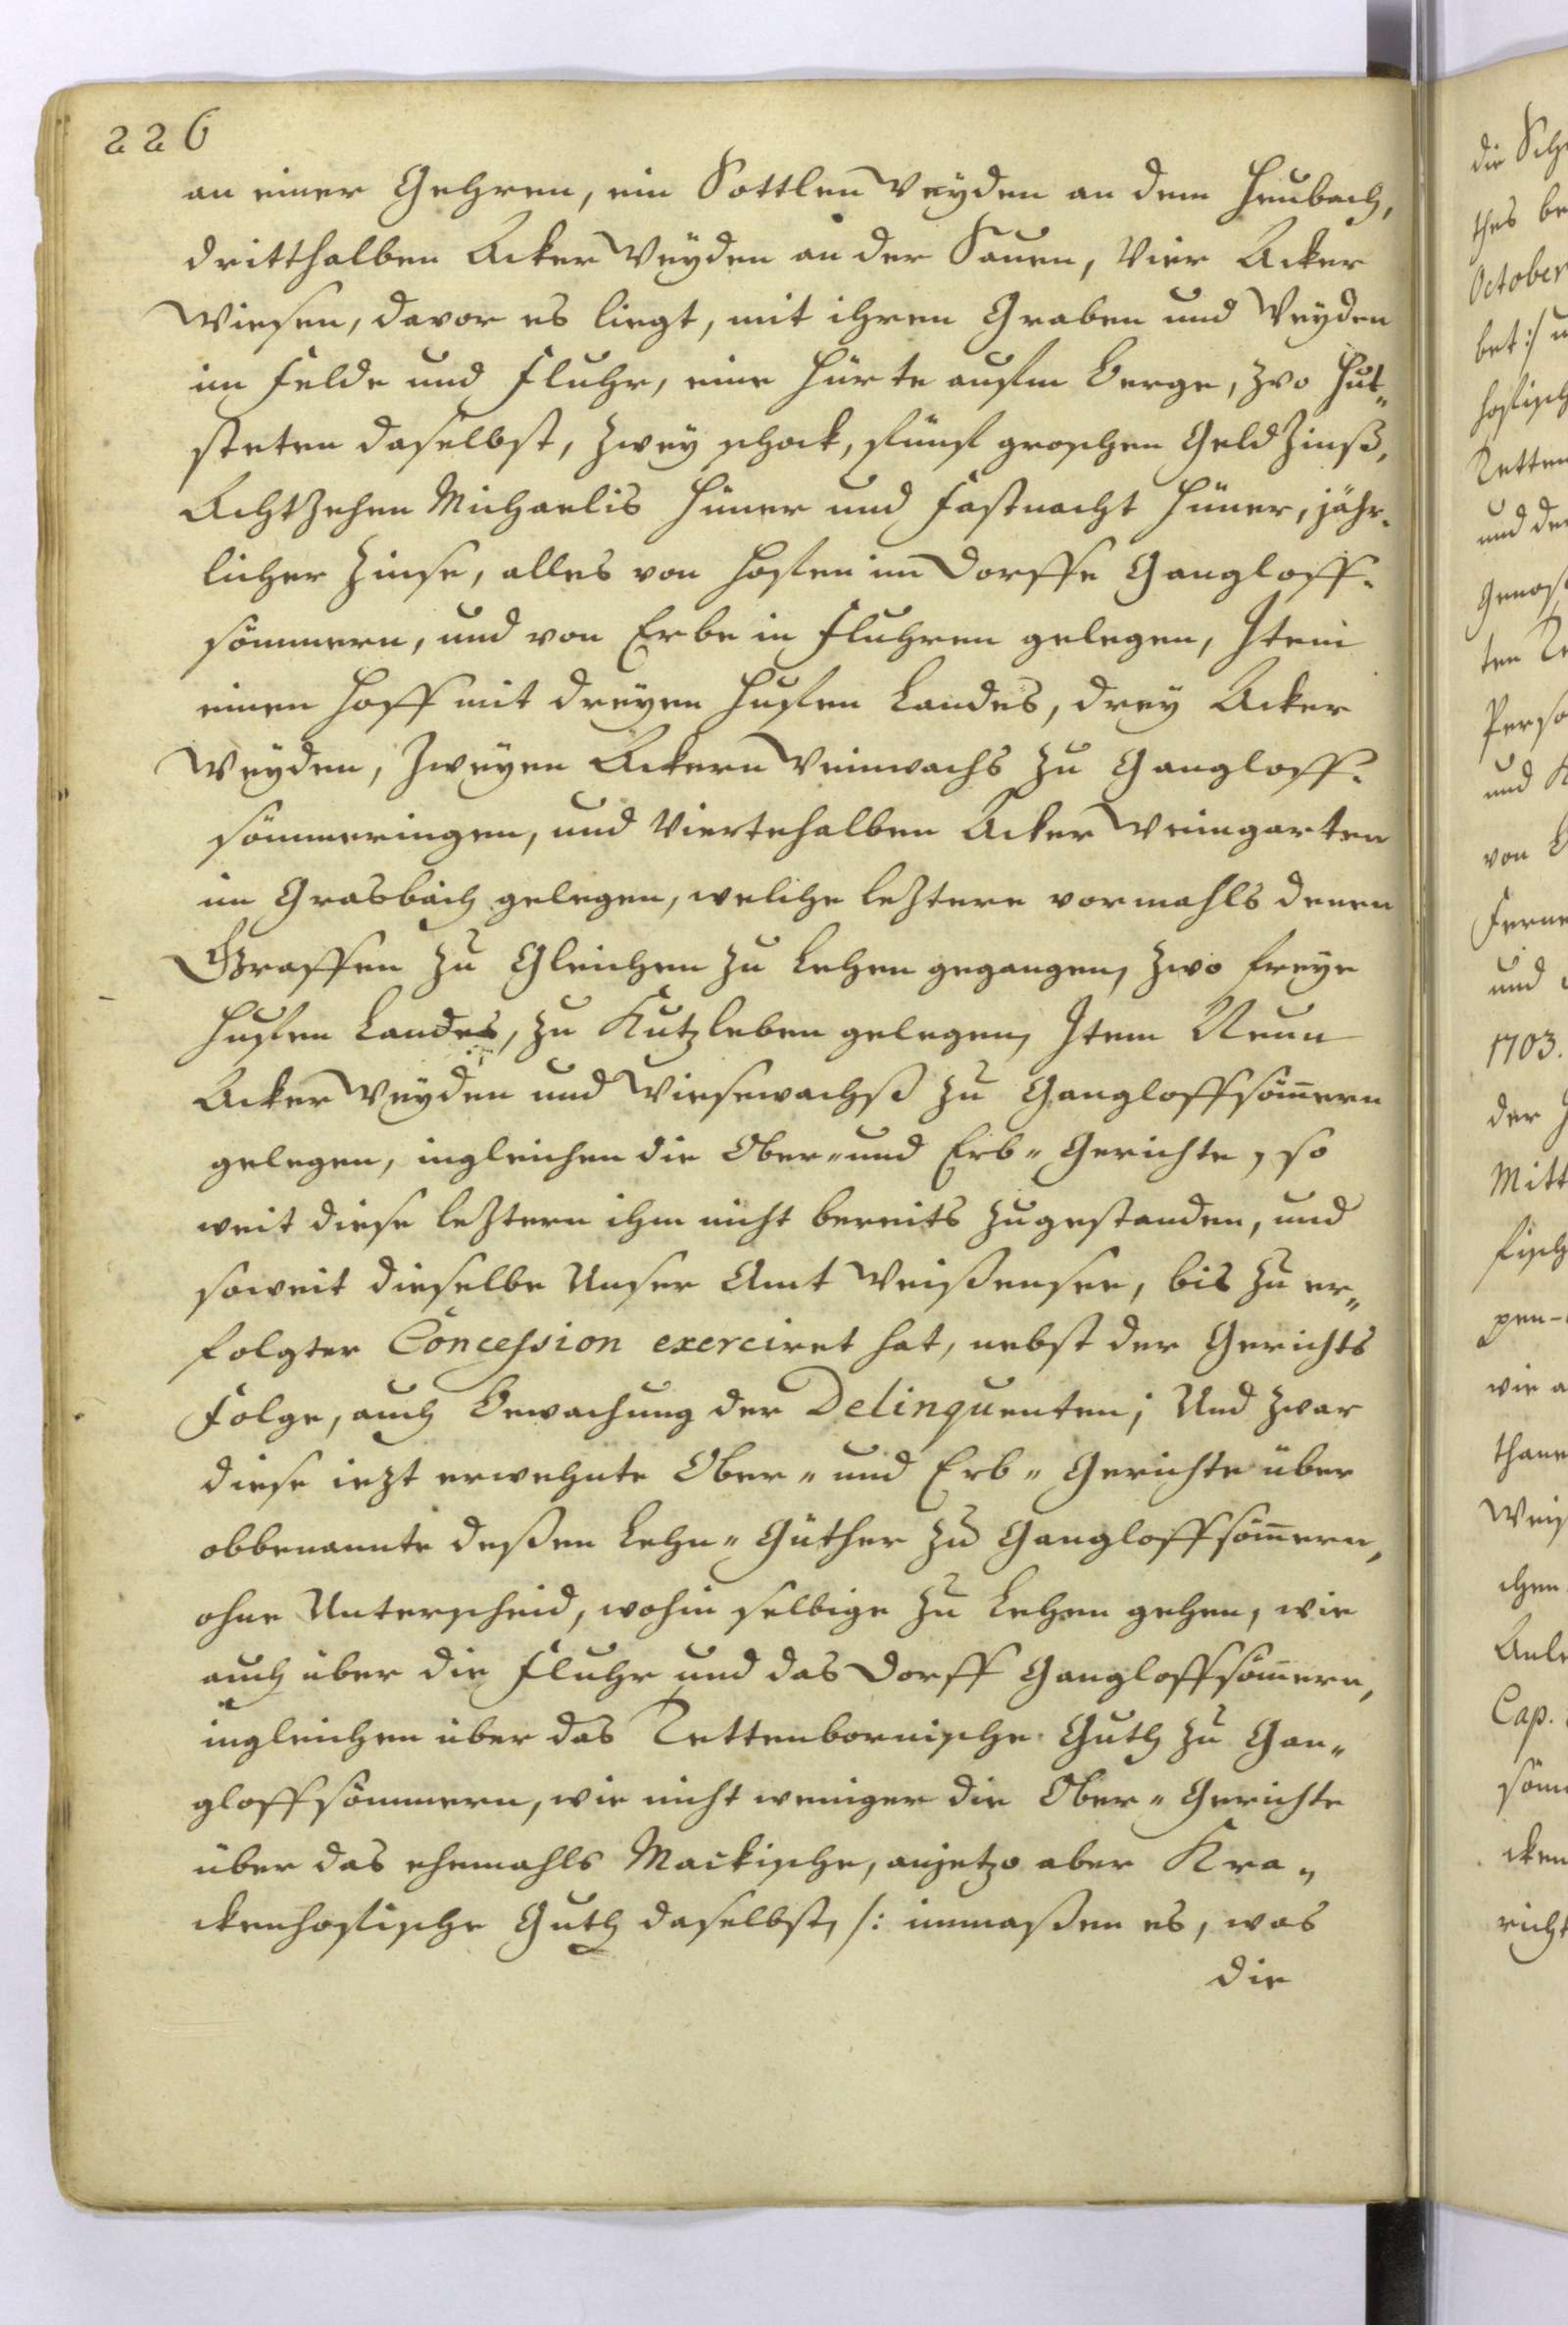 226
an einer Gehren, ein Sottlen Weyden an dem Heubach,
dritthalben Acker Weyden an der Sauen, Vier Acker
Wiesen, davor es liegt, mit ihren Graben und Weyden
im Felde und Fluhr, eine Hürte aufm Berge, zwo Hut„
steten daselbst, zwey schock, fünf groschen Geld Zinß,
Achtzehen Michaelis Hüner und Fastnacht Hüner, jähr-
licher Zinse, alles von Hofen im Dorffe Gangloff-
sömmern, und von Erbe in Fluhren gelegen, Item
einen Hoff mit dreyen Hufen Landes, drey Acker
Weyden, Zweyen Ackern Weinwachs zu Gangloff-
sömmeringen, und Viertehalben Acker Weingarten
im Grasbach gelegen, welche leztere vormahls denen
Graffen zu Gleichen zu Lehen gegangen, zwo freye
Hufen Landes, zu Kutzleben gelegen, Item Neun
Acker Weyden und Wiesewachß zu Gangloffsöm̄ern
gelegen, ingleichen die Ober- und Erb„ Gerichte, so
weit diese leztern ihm nicht bereits zugestanden, und
soweit dieselbe Unser Amt Weißensee, bis zu er„
folgter Concession exerciret hat, nebst der Gerichts
Folge, auch Bewachung der Delinquenten; Und zwar
diese iezt erwehnte Ober„ und Erb„ Gerichte über
obbenannte deßen Lehn„ Güther zu Gangloffsöm̄ern,
ohne Unterscheid, wohin selbige zu Lehen gehen, wie
auch über die Fluhr und das Dorff Gangloffsöm̄ern,
ingleichen über das Tettenbornische Guth zu Gan„
gloffsömmern, wie nicht weniger die Ober„ Gerichte
über das ehemahls Mackische, anjetzo aber Kra„
ckenhofische Guth daselbst, /: immaßen es, was
die
October
und
Perso
und
von
und
1703.
der
Mitt
pen-
wie a
Cap.
cken
richt